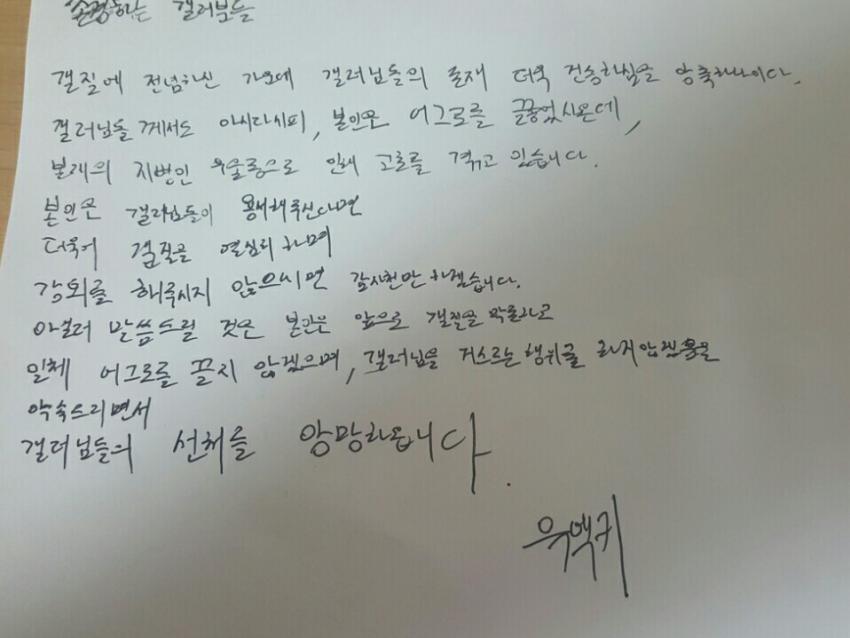 존경하는 갤러분들
갤질에 전념하신 가운데 갤러님들의 존재 더욱 건승하심을 앙축하나이다.
갤러님들 께서도 아시다시피, 본인은 어그로를 끌었사온데,
본래의 지병인 우울증으로 인해 고초를 겪고 있습니다.
본인은 갤러님들이 용서해주신다면
더욱더 갤질을 열심히 하며
강퇴를 해주시지 않으시면 감사천만 하겠습니다.
아울러 말씀드릴 것은 본인은 앞으로 갤질을 하고
일체 어그로를 끌지 않겠으며, 갤러님을 거스르는 행위를 하지않겠음을
약속드리면서
갤러님들의 선처를 앙망하옵니다.